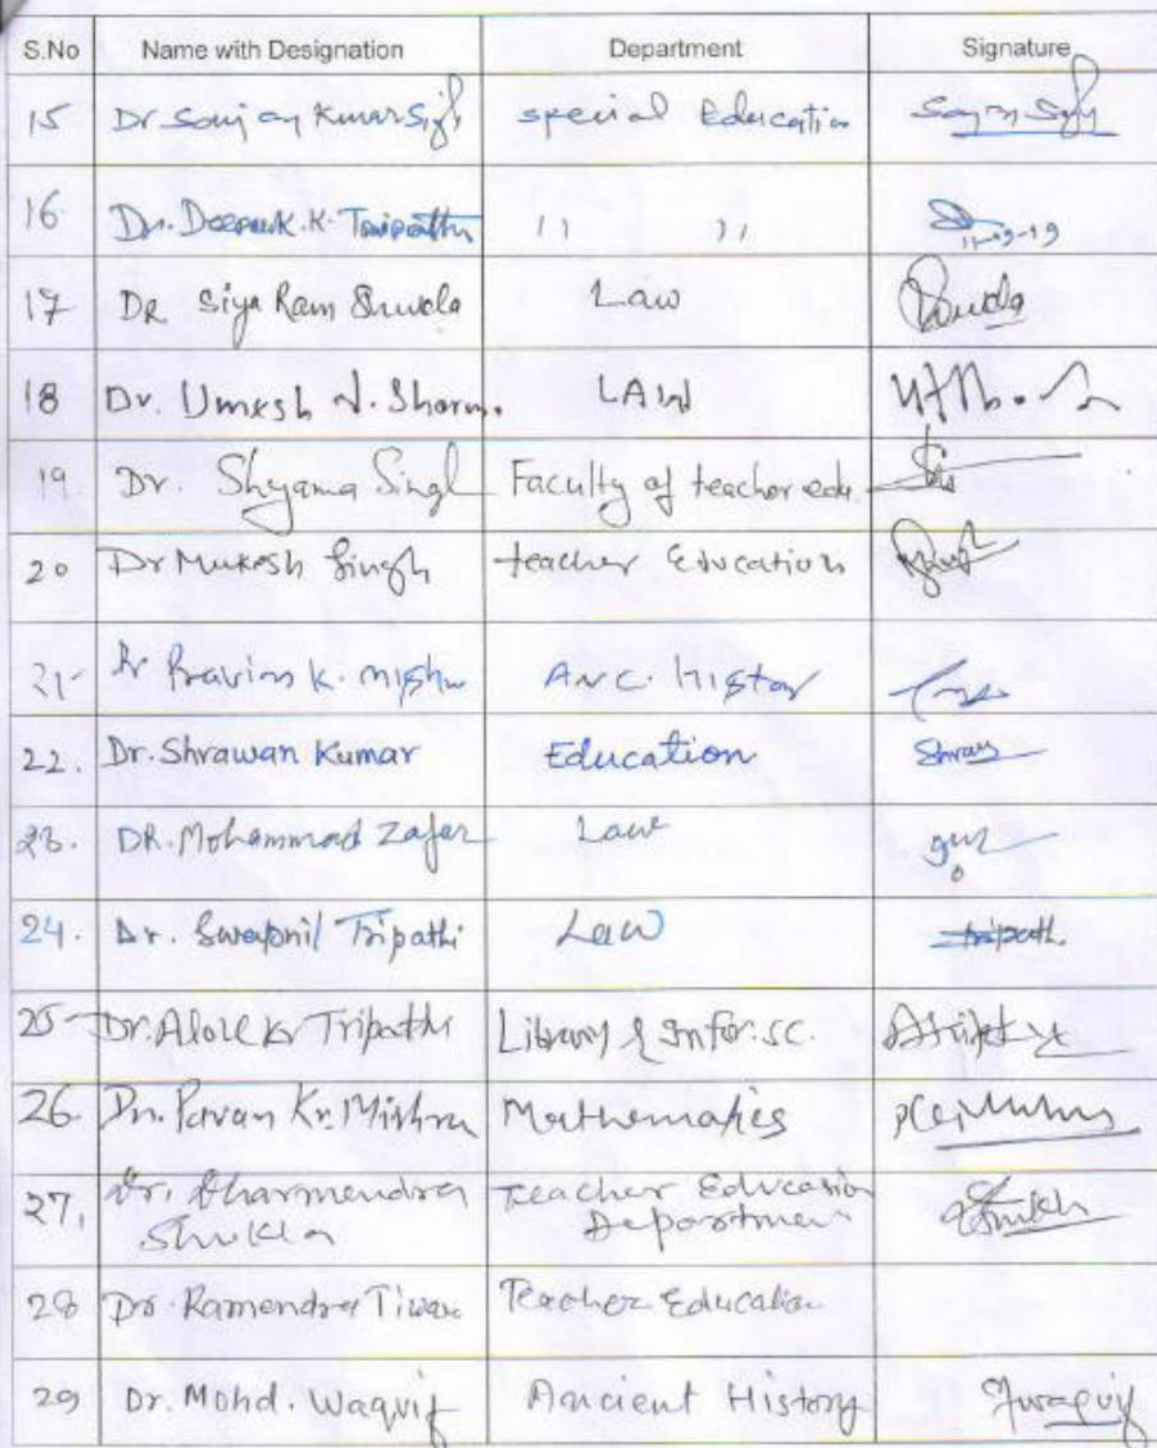 S.No Name with Designation Department Signature
15 Dr Sanjay Kumar Singh special Education
16 Dr. Deepak K. Tripathi " "
11-03-19
17 DR Siya Ram Shukla Law
18 Dr. Umesh N. Sharma LAW
19 Dr. Shyama Singh Faculty of teacher edu
20 Dr Mukesh Singh teacher Education
21- Dr Pravin K. Mishra ANC. History
22. Dr. Shrawan Kumar Education
23. DR. Mohammad Zafar Law
24. Dr. Swapnil Tripathi Law Tripathi
25- Dr. Alok Kr Tripathi Library & Infor. sc.
26. Dr. Pavan Kr. Mishra Mathematics
27. Dr. Dharmendra Teacher Education
Shukla Department
28 Dr. Ramendra Tiwari Teacher Education
29 Dr. Mohd. Waquif Ancient History